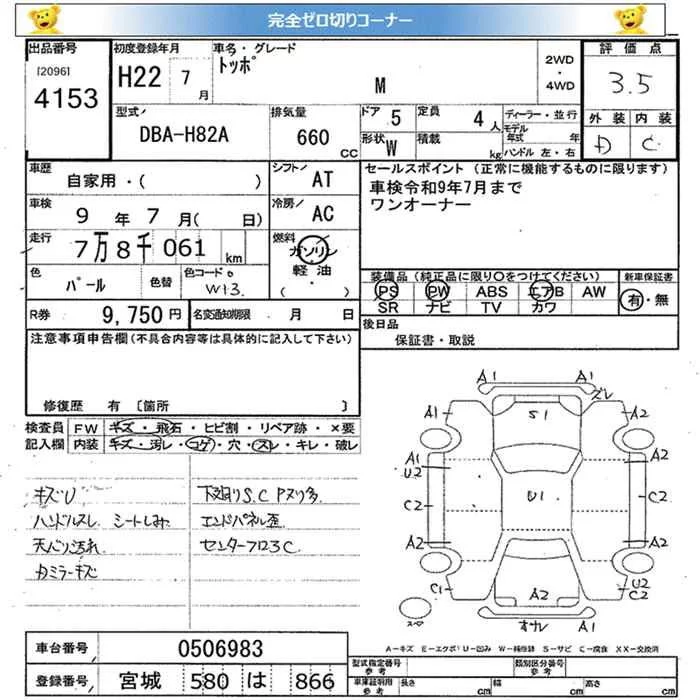 完全ゼロ切りコーナー
出品番号
[2096]
4153
初度登録年月
H22 7月
車名・グレード
トッポ
M
2WD
・
4WD
評価点
3.5
外装 内装
D C
型式
DBA-H82A
排気量
660 CC
ドア 5
定員 4人
形状 W
積載 kg
ディーラー・並行
モデル年式 年
ハンドル 左・右
車歴
自家用・( )
シフト AT
車検
9年7月( 日)
冷房 AC
走行
7万8千061km
燃料
ガソリン
軽油
( ・ )
色
パール
色替
色コード
W13
R券 9,750円
名変通知期限 月 日
セールスポイント (正常に機能するものに限ります)
車検令和9年7月まで
ワンオーナー
装備品(純正品に限り○をつけてください)
PS PW ABS エアB AW
SR ナビ TV カワ
新車保証書
有・無
後日品
保証書・取説
注意事項申告欄(不具合内容等は具体的に記入して下さい)
修復歴 有 [箇所 ]
検査員記入欄
FW キズ・飛石・ヒビ割・リペア跡・×要
内装 キズ・汚レ・コゲ・穴・スレ・キレ・破レ
キズU
ハンドルスレ シートしみ
天バリ汚れ
カミラーキズ
下廻りS.C Pヌリ多
エンドパネル歪
センターフロアC
A1 A1
ズレ
A1 S1 A2
A1
U2
A2
C2 U1 C2
A2 A2
C1 A2 U2
C2
スペア
オサレ
A1
A-キズ E-エクボ U-凹み W-補修跡 S-サビ C-腐食 XX-交換済
車台番号 0506983
登録番号 宮城 580 は 866
型式指定番号
参考
類別区分番号
参考
車庫証明用
参考
長さ cm
幅 cm
高さ cm